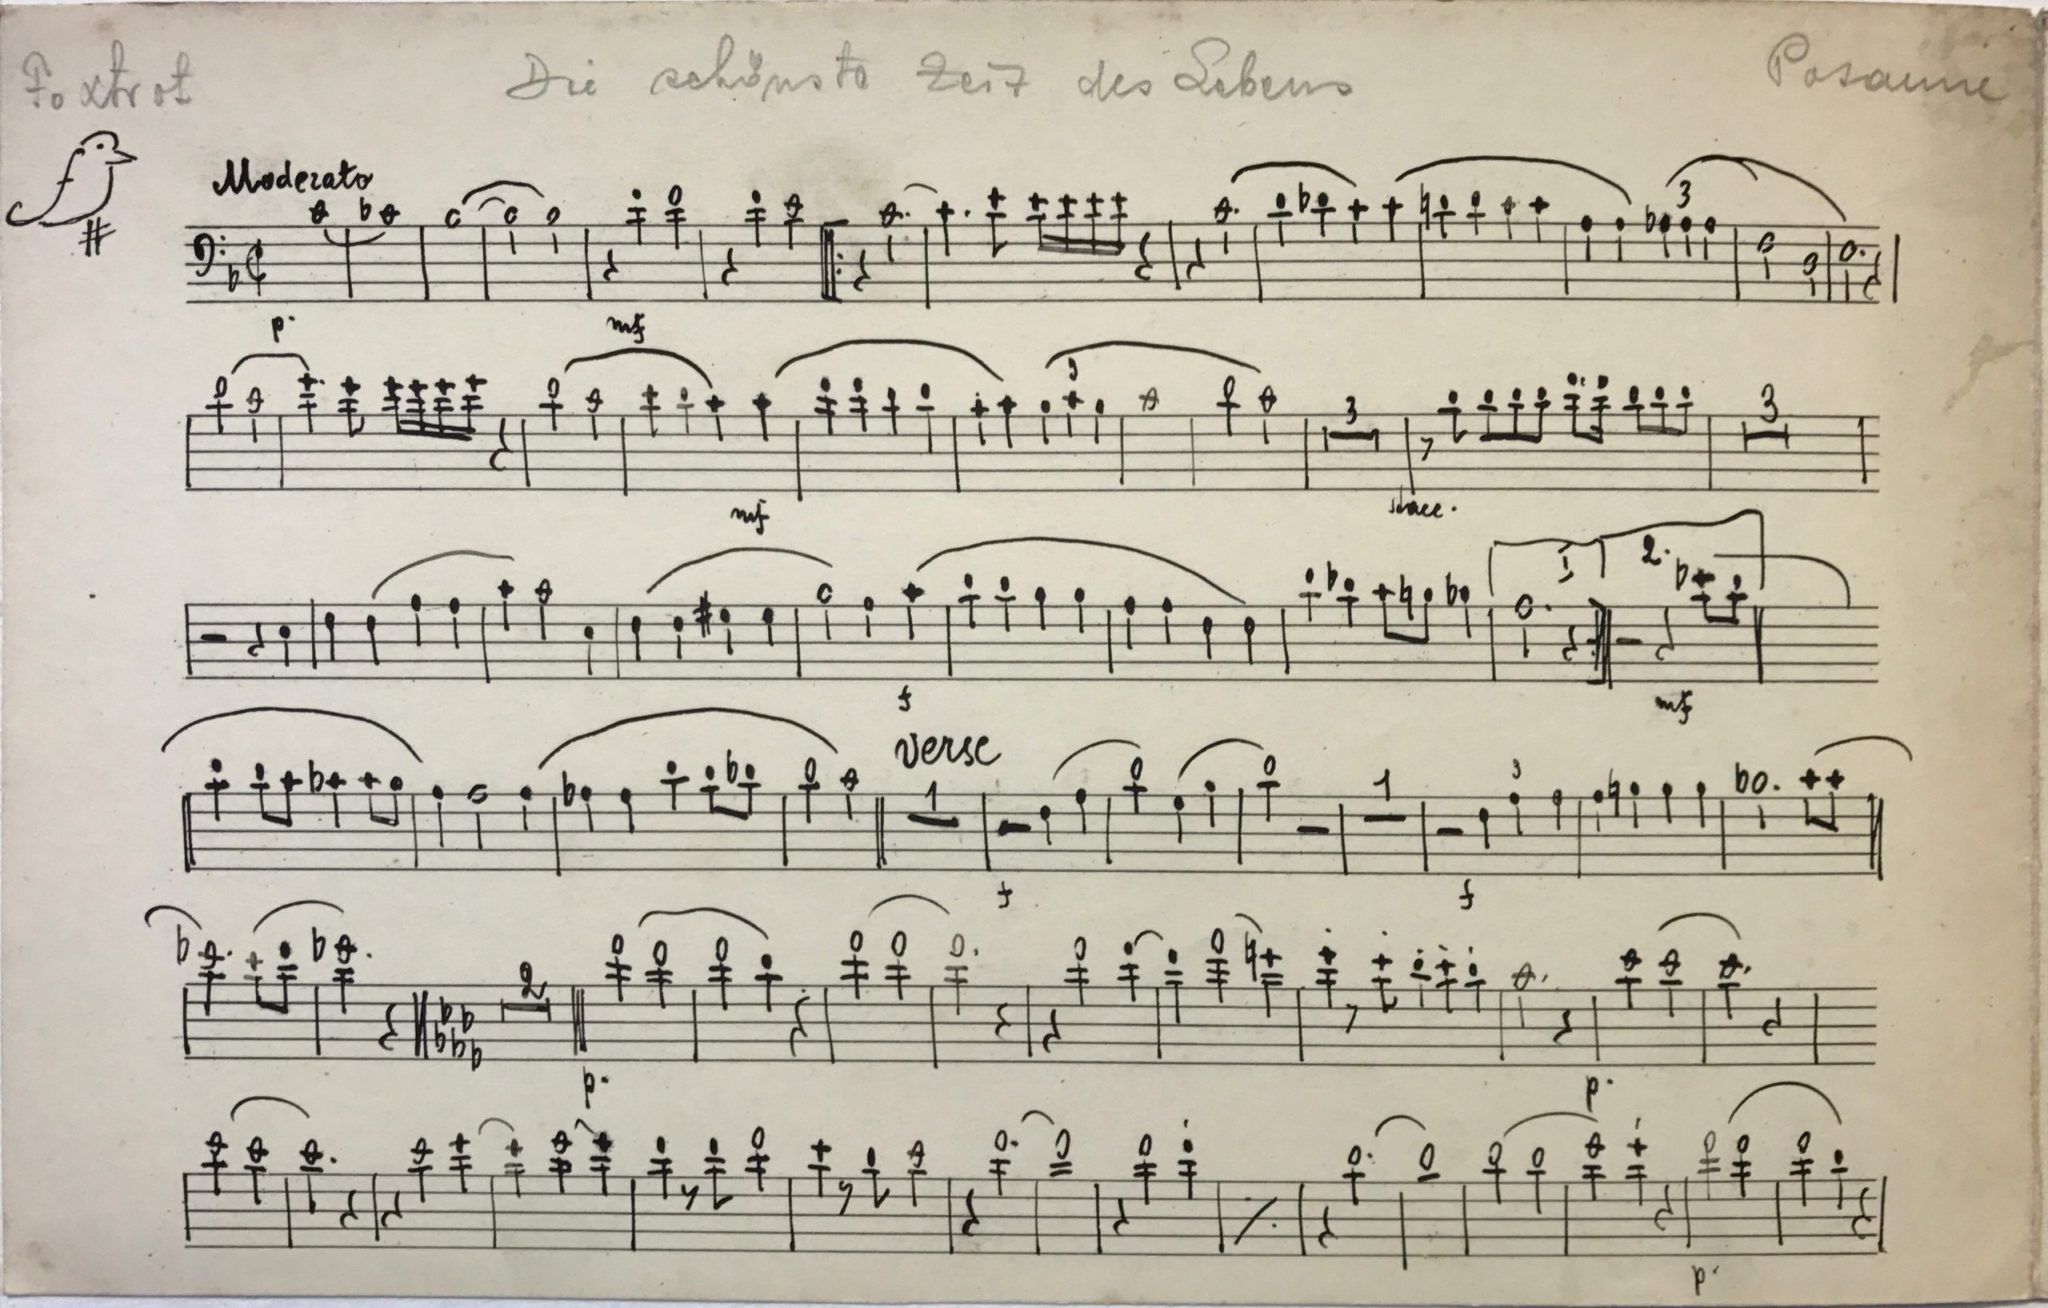 Foxtrot Die schönste Zeit des Lebens Posaune
Moderato
3
p. mf
3
3 3
mf stacc.
1 2.
f mf
verse
1 1 3
f f
2
p. p.
p.